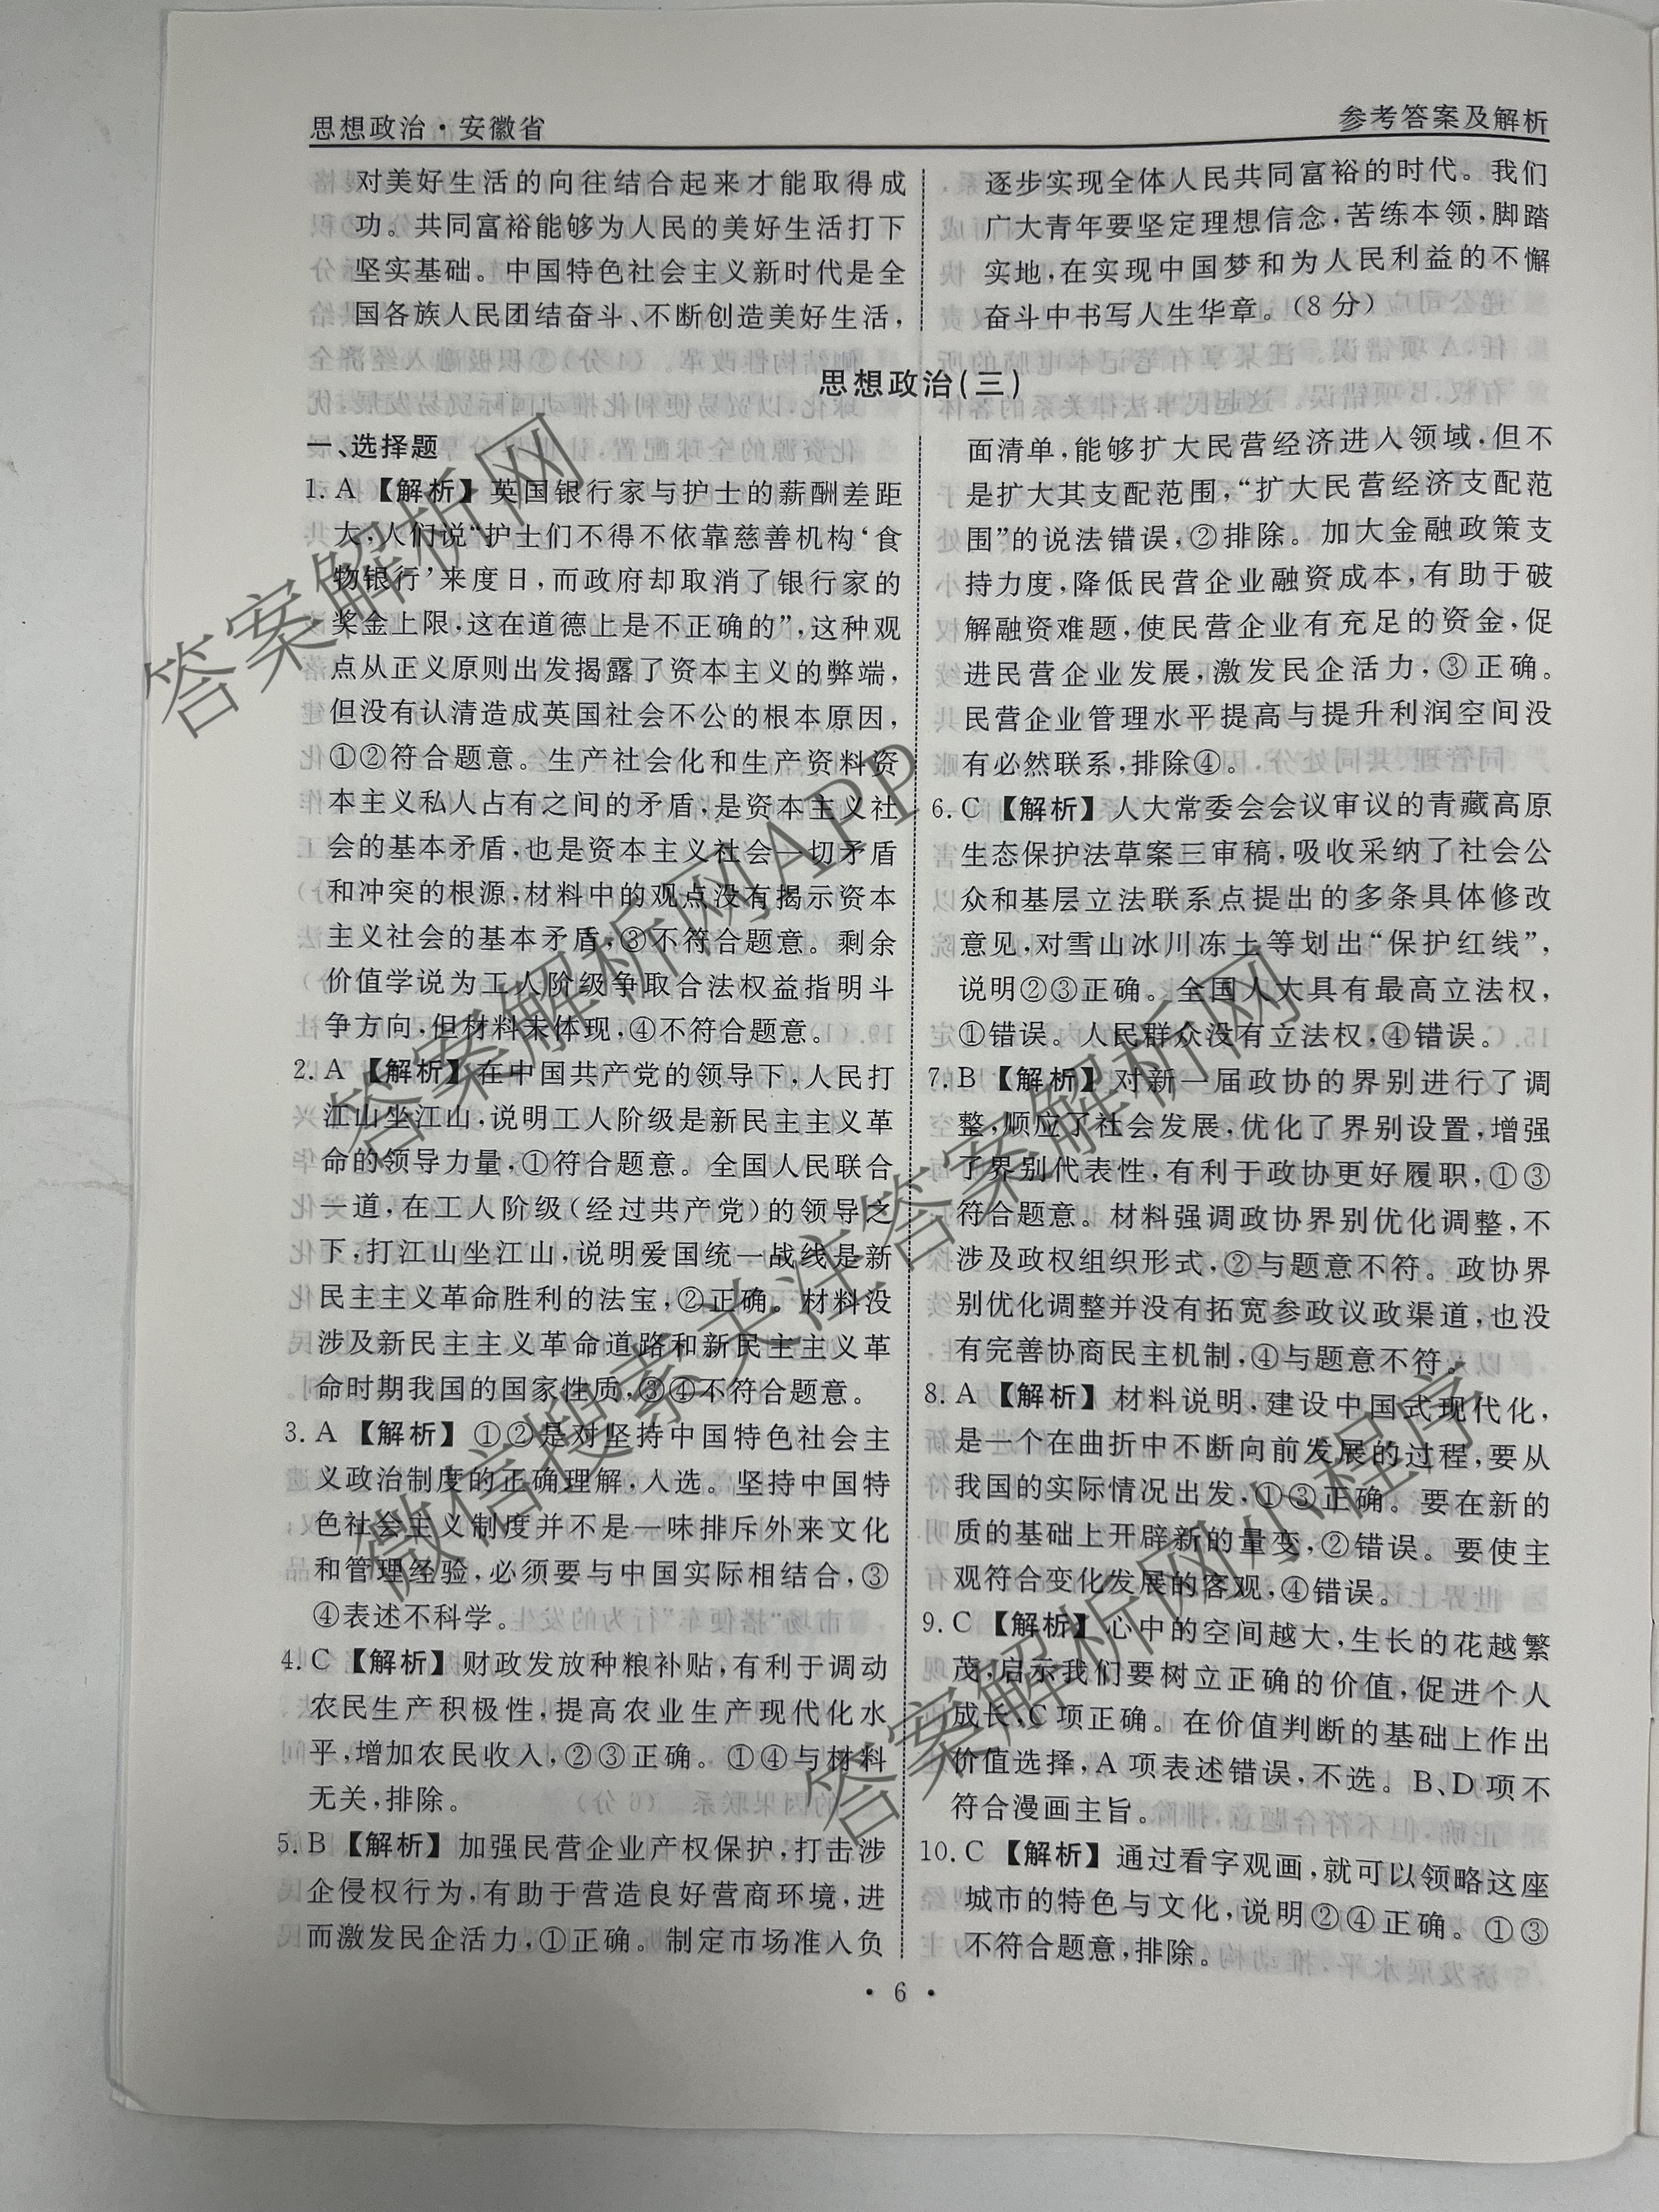 思想政治·安徽省
参考答案及解析
对美好生活的向往结合起来才能取得成
功。共同富裕能够为人民的美好生活打下
坚实基础。中国特色社会主义新时代是全
国各族人民团结奋斗、不断创造美好生活，
逐步实现全体人民共同富裕的时代。我们
广大青年要坚定理想信念，苦练本领，脚踏
实地，在实现中国梦和为人民利益的不懈
奋斗中书写人生华章。（8分）
思想政治（三）
一、选择题
1. A 【解析】英国银行家与护士的薪酬差距
大，人们说“护士们不得不依靠慈善机构‘食
物银行’来度日，而政府却取消了银行家的
奖金上限，这在道德上是不正确的”，这种观
点从正义原则出发揭露了资本主义的弊端，
但没有认清造成英国社会不公的根本原因，
①②符合题意。生产社会化和生产资料资
本主义私人占有之间的矛盾，是资本主义社
会的基本矛盾，也是资本主义社会一切矛盾
和冲突的根源，材料中的观点没有揭示资本
主义社会的基本矛盾，③不符合题意。剩余
价值学说为工人阶级争取合法权益指明斗
争方向，但材料未体现，④不符合题意。
2. A 【解析】在中国共产党的领导下，人民打
江山坐江山，说明工人阶级是新民主主义革
命的领导力量，①符合题意。全国人民联合
一道，在工人阶级（经过共产党）的领导之
下，打江山坐江山，说明爱国统一战线是新
民主主义革命胜利的法宝，②正确。材料没
涉及新民主主义革命道路和新民主主义革
命时期我国的国家性质，③④不符合题意。
3. A 【解析】①②是对坚持中国特色社会主
义政治制度的正确理解，入选。坚持中国特
色社会主义制度并不是一味排斥外来文化
和管理经验，必须要与中国实际相结合，③
④表述不科学。
4. C 【解析】财政发放种粮补贴，有利于调动
农民生产积极性，提高农业生产现代化水
平，增加农民收入，②③正确。①④与材料
无关，排除。
5. B 【解析】加强民营企业产权保护，打击涉
企侵权行为，有助于营造良好营商环境，进
而激发民企活力，①正确。制定市场准入负
面清单，能够扩大民营经济进入领域，但不
是扩大其支配范围，“扩大民营经济支配范
围”的说法错误，②排除。加大金融政策支
持力度，降低民营企业融资成本，有助于破
解融资难题，使民营企业有充足的资金，促
进民营企业发展，激发民企活力，③正确。
民营企业管理水平提高与提升利润空间没
有必然联系，排除④。
6. C 【解析】人大常委会会议审议的青藏高原
生态保护法草案三审稿，吸收采纳了社会公
众和基层立法联系点提出的多条具体修改
意见，对雪山冰川冻土等划出“保护红线”，
说明②③正确。全国人大具有最高立法权，
①错误。人民群众没有立法权，④错误。
7. B 【解析】对新一届政协的界别进行了调
整，顺应了社会发展，优化了界别设置，增强
了界别代表性，有利于政协更好履职，①③
符合题意。材料强调政协界别优化调整，不
涉及政权组织形式，②与题意不符。政协界
别优化调整并没有拓宽参政议政渠道，也没
有完善协商民主机制，④与题意不符。
8. A 【解析】材料说明，建设中国式现代化，
是一个在曲折中不断向前发展的过程，要从
我国的实际情况出发，①③正确。要在新的
质的基础上开辟新的量变，②错误。要使主
观符合变化发展的客观，④错误。
9. C 【解析】心中的空间越大，生长的花越繁
茂，启示我们要树立正确的价值，促进个人
成长，C项正确。在价值判断的基础上作出
价值选择，A项表述错误，不选。B、D项不
符合漫画主旨。
10. C 【解析】通过看字观画，就可以领略这座
城市的特色与文化，说明②④正确。①③
不符合题意，排除。
· 6 ·
答案解析网
答案解析网APP
微信搜索关注答案解析网
答案解析网小程序